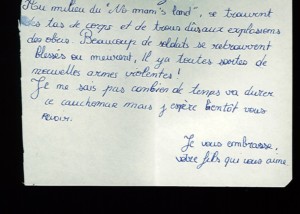 Au milieu du "No mam's land", se trouvent
des tas de corps et de trous dûs aux explosions
des obus. Beaucoup de soldats se retrouvent
blessés ou meurent, Il y a toutes sortes de
nouvelles armes violentes!
Je ne sais pas combien de temps va durer
ce cauchemar mais j'espère bientôt vous
revoir.
Je vous embrasse,
votre fils qui vous aime